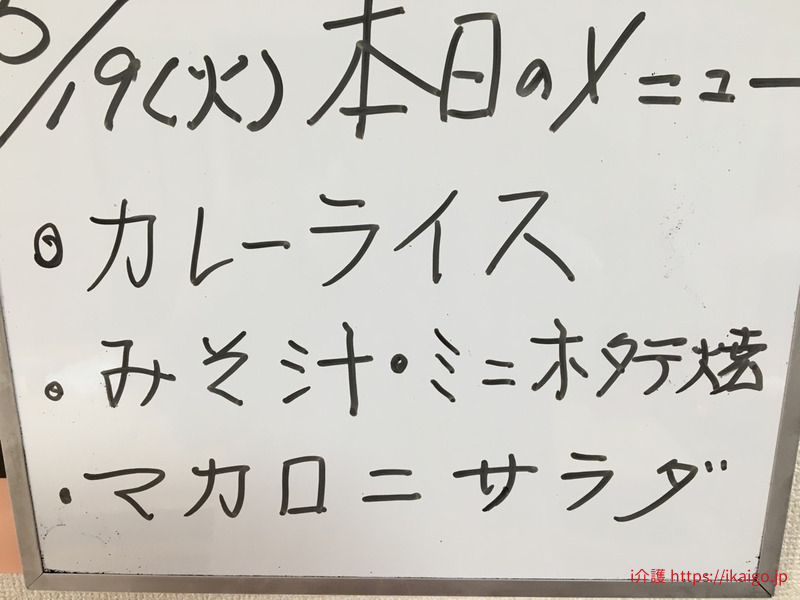 /19(火) 本日のメニュー
・カレーライス
・みそ汁・ミニホタテ焼
・マカロニサラダ
i介護 https://ikaigo.jp